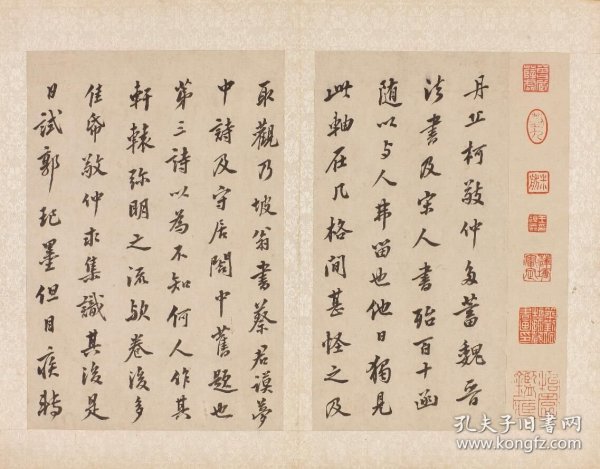 丹丘柯敬仲多蓄魏晉
法書及宋人書殆百十函
随以与人弗留也他日獨見
此軸在几格間甚怪之及
取觀乃坡翁書蔡君謨夢
中詩及守居閣中舊題也
第三詩以為不知何人作其
軒轅弥明之流歟卷後多
佳帋敬仲求集識其後是
日試郭玘墨但目疾轉
孔夫子旧书网
www.kongfz.com